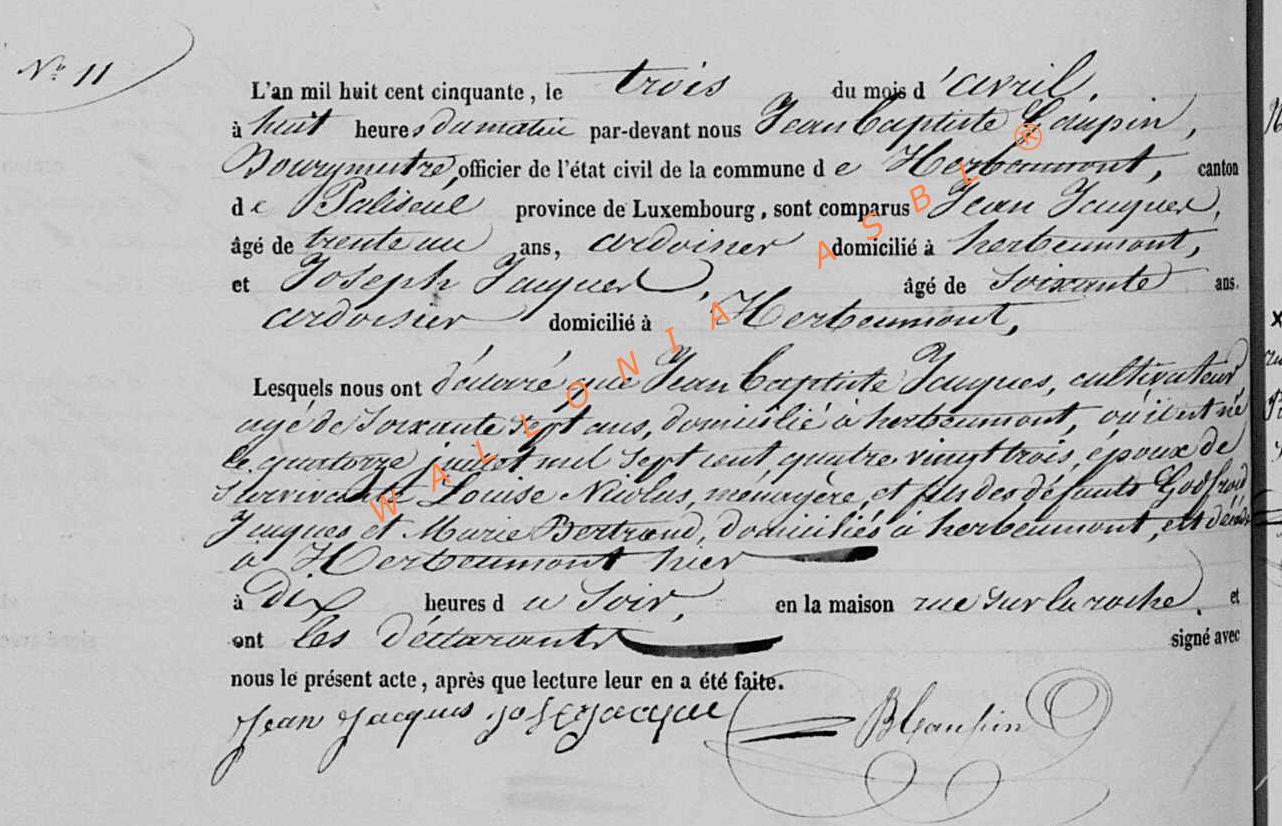 N° 11
L'an mil huit cent cinquante, le trois du mois d'avril,
à huit heures du matin par-devant nous Jean Baptiste Laupin,
Bourgmestre, officier de l'état civil de la commune de Herbeumont, canton
de Paliseul province de Luxembourg, sont comparus Jean Jacques,
âgé de trente un ans, ardoisier domicilié à herbeumont,
et Joseph Jacques, âgé de soixante ans.
ardoisier domicilié à Herbeumont,
Lesquels nous ont déclaré que Jean Baptiste Jacques, cultivateur,
agé de soixante sept ans, domicilié à herbeumont, où il est né
le quatorze juillet mil sept cent quatre vingt trois, époux de
survivante Louise Nicolas, ménagère, et fils des défunts Godfroid
Jacques et Marie Bertrand, domiciliés à herbeumont, est décédé
à Herbeumont hier
à Dix heures du soir, en la maison rue sur la roche, et
ont les déclarants signé avec
nous le présent acte, après que lecture leur en a été faite.
Jean Jacques Josefjacque BLaupin
WALLONIA ASBL ®